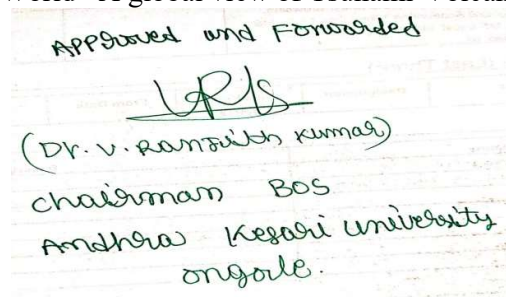 APPRoved and Forwarded
(Dr. V. Ranjith Kumar)
chairman BOS
Andhra Kesari University
ongole.